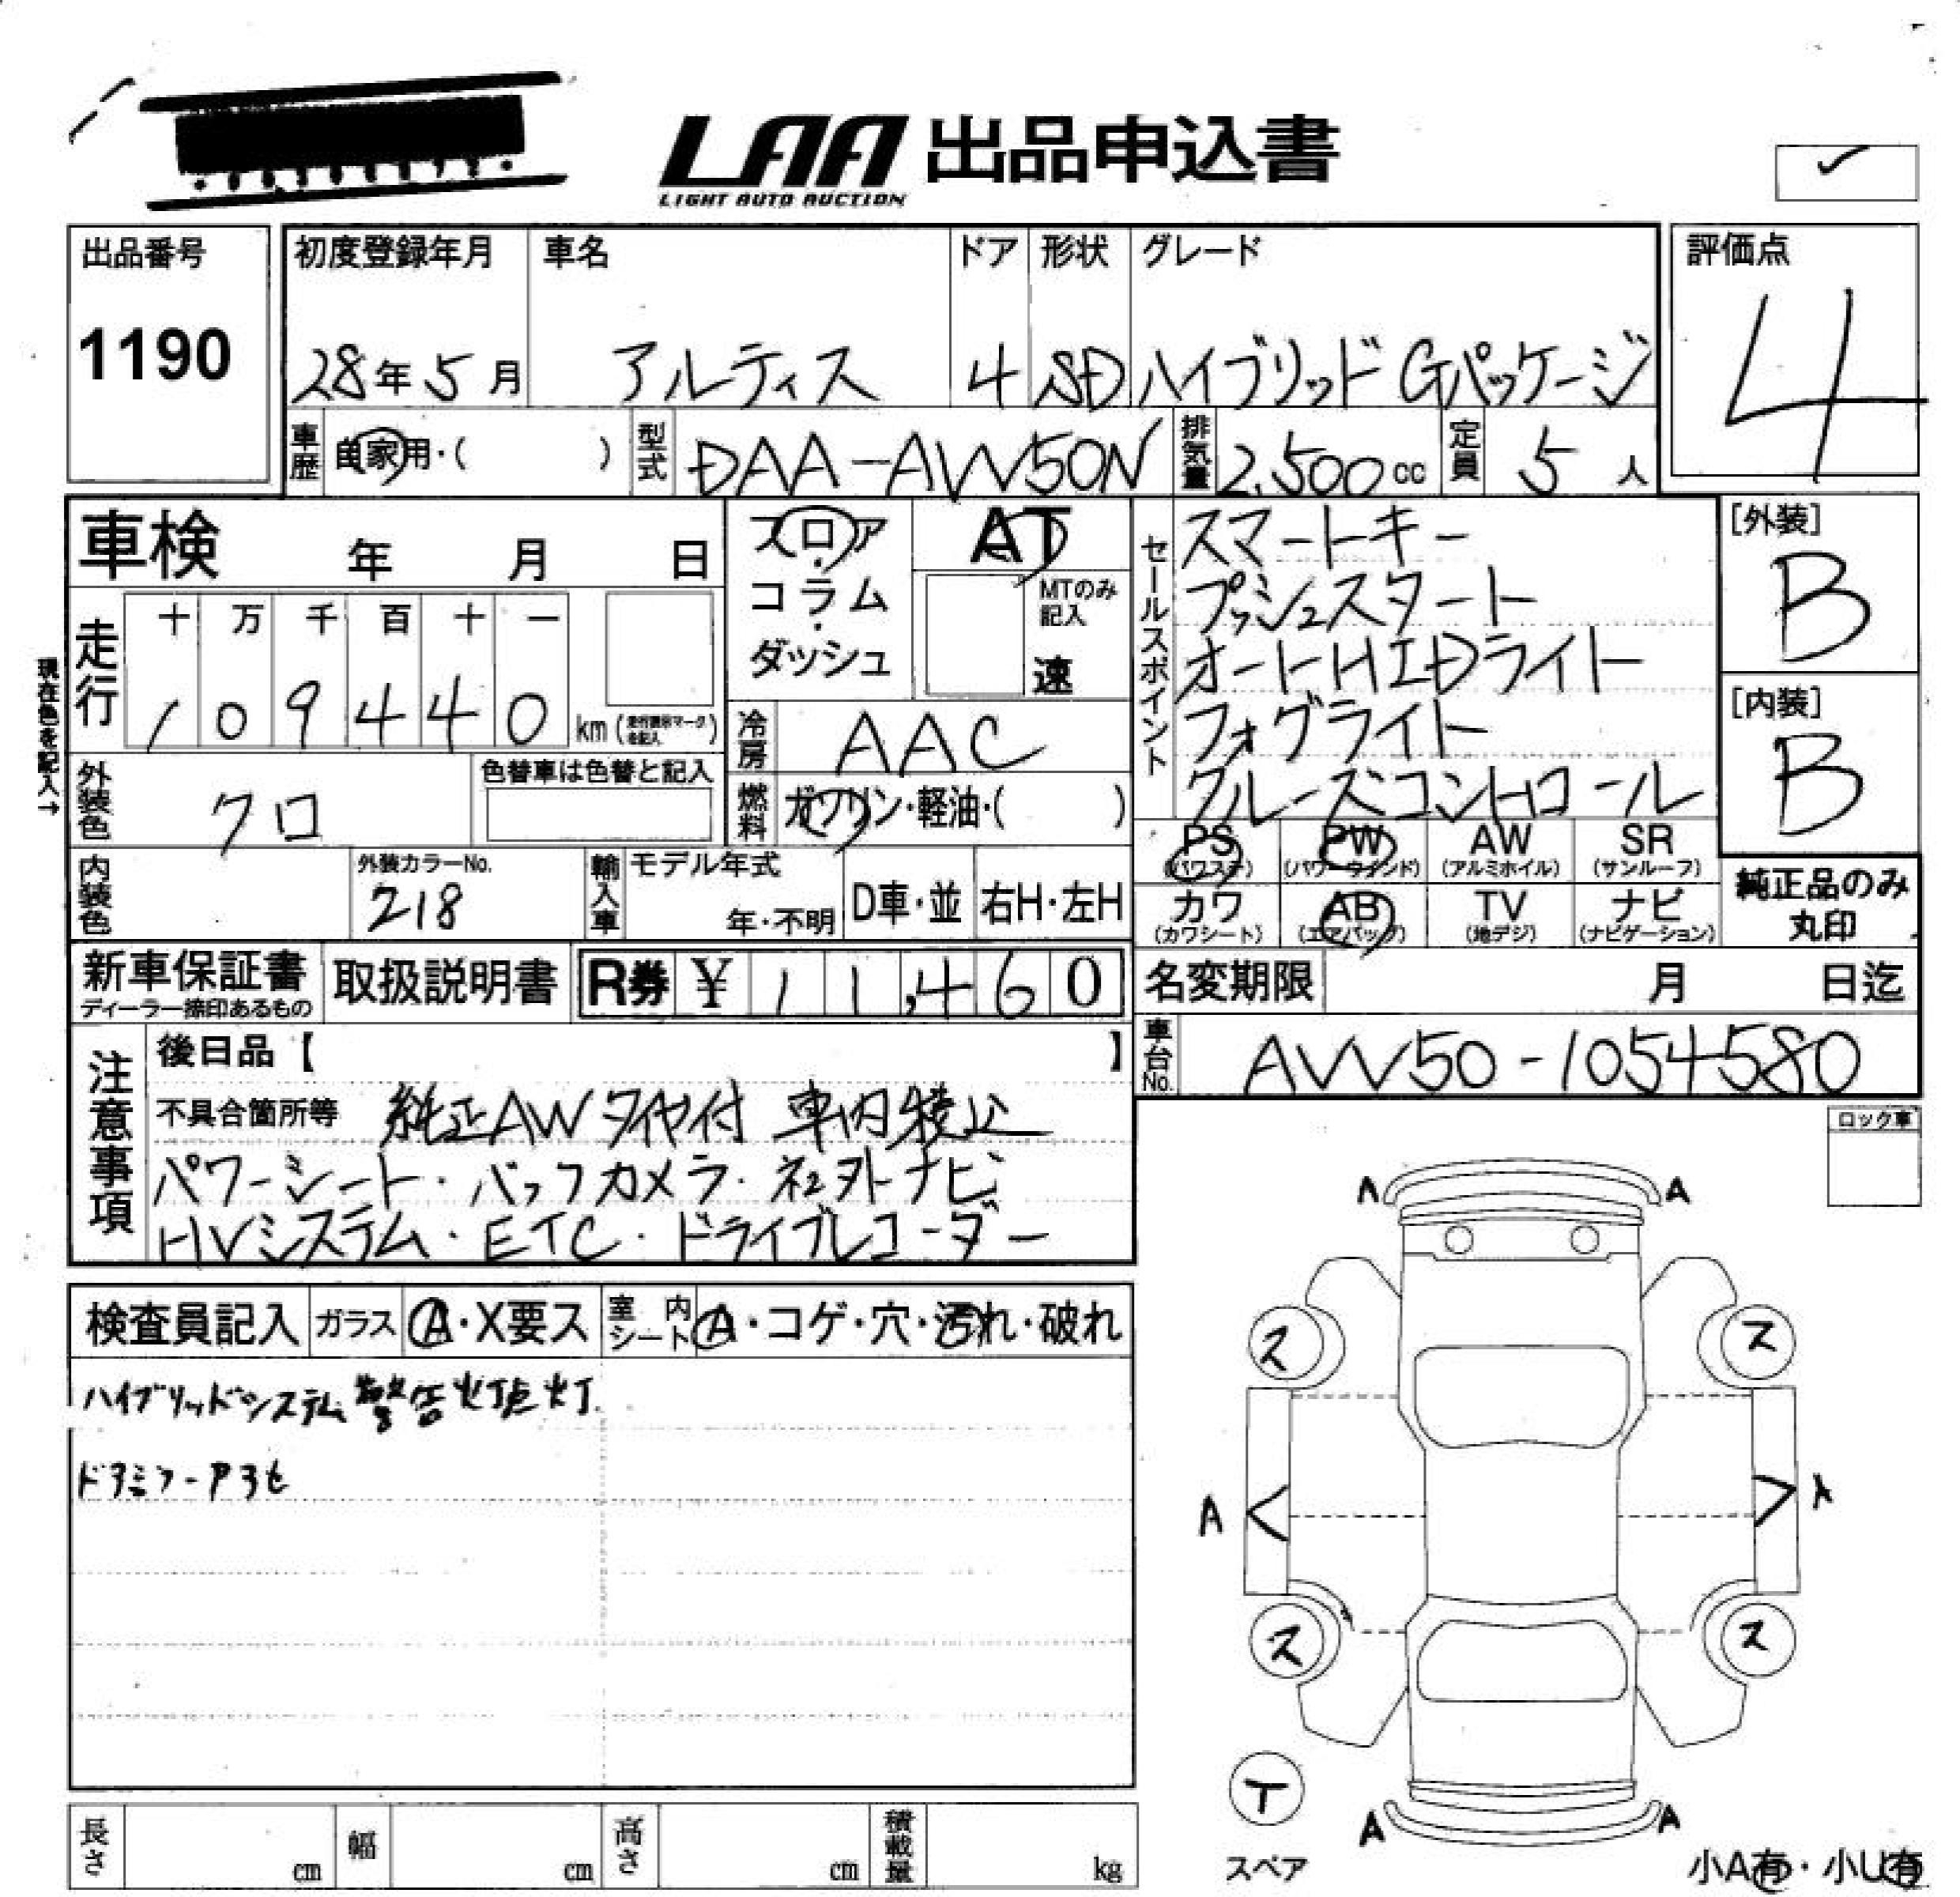 LAA 出品申込書
LIGHT AUTO AUCTION
出品番号
1190
初度登録年月 車名 ドア 形状 グレード
28年5月 アルティス 4 SD ハイブリッド Gパッケージ
評価点
4
車歴 自家用・( ) 型式 DAA-AVV50N 排気量 2,500cc 定員 5人
車検 年 月 日
フロア・コラム・ダッシュ
AT
MTのみ記入
速
セールスポイント
スマートキー
プッシュスタート
オートHIDライト
フォグライト
クルーズコントロール
[外装]
B
[内装]
B
現在色を記入→
走行 十 万 千 百 十 一
1 0 9 4 4 0 km (走行距離マークを記入)
冷房 AAC
外装色 クロ 色替車は色替と記入
燃料 ガソリン・軽油・( )
PS (パワステ) PW (パワーウインド) AW (アルミホイル) SR (サンルーフ)
カワ (カワシート) AB (エアバッグ) TV (地デジ) ナビ (ナビゲーション)
純正品のみ丸印
内装色 外装カラーNo. 218
輸入車 モデル年式 年・不明 D車・並 右H・左H
新車保証書 ディーラー捺印あるもの
取扱説明書 R券 ¥11,460
名変期限 月 日迄
車台No. AVV50-1054580
注意事項
後日品【 】
不具合箇所等 純正AWタイヤ付 車内
パワーシート・バックカメラ・社外ナビ
HVシステム・ETC・ドライブレコーダー
ロック車
検査員記入 ガラス A・X要ス 室内シート A・コゲ・穴・汚れ・破れ
ハイブリッドシステム警告灯点灯
ドアミラー
A A
ス ス
A A
ス ス
T
スペア
A A
小A有・小U有
長さ cm 幅 cm 高さ cm 積載量 kg